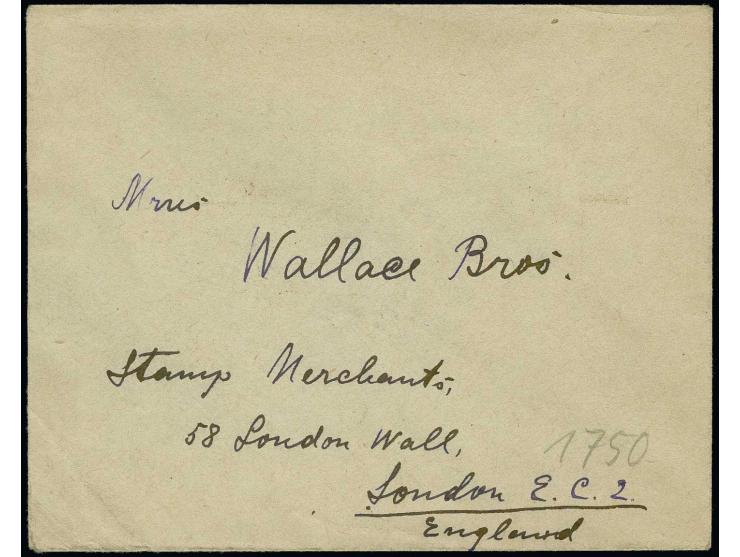 Mrrs
Wallace Bros.
Stamp Merchants,
58 London Wall,
1750
London E. C. 2.
England